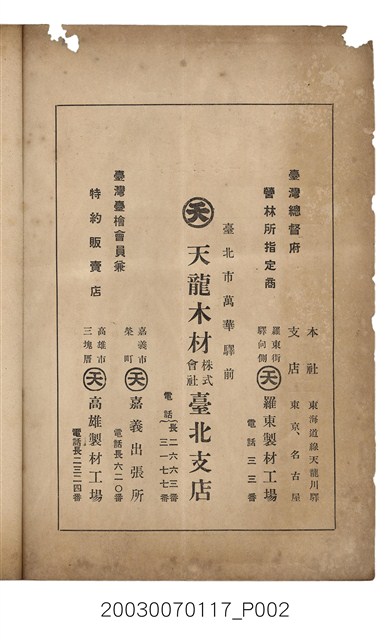 臺灣總督府
營林所指定商
本社 東海道線天龍川驛
支店 東京、名古屋
羅東街
驛向側
㊝天 羅東製材工場
電話三三番
臺北市萬華驛前
天 天龍木材株式會社臺北支店
電話(長二六六三番
三一七七番
臺灣臺檜會員兼
特約販賣店
嘉義市
榮町
天 嘉義出張所
電話長六二〇番
高雄市
三塊厝
天 高雄製材工場
電話長二三二四番
20030070117_P002